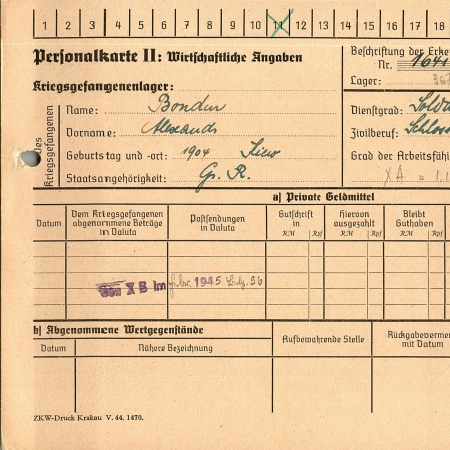 1 2 3 4 5 6 7 8 9 10 11 12 13 14 15 16 17 18
Personalkarte II: Wirtschaftliche Angaben
Beschriftung der Erke
Nr. 1641
Kriegsgefangenenlager:
Lager: 367
des Kriegsgefangenen
Name: Bondur
Dienstgrad: Solda
Vorname: Alexandr
Zivilberuf: Schloss
Geburtstag und -ort: 1904 Kiew
Grad der Arbeitsfähi
Staatsangehörigkeit: Gr. R.
XA = 1.1
a) Private Geldmittel
Datum
Dem Kriegsgefangenen abgenommene Beträge im Valuta
Postsendungen in Valuta
Gutschrift in
Hiervon ausgezahlt
Bleibt Guthaben
RM Rpf RM Rpf RM Rpf
X B im 1945
b) Abgenommene Wertgegenstände
Datum
Nähere Bezeichnung
Aufbewahrende Stelle
Rückgabevermer mit Datum
ZKW-Druck Krakau V. 44. 1470.